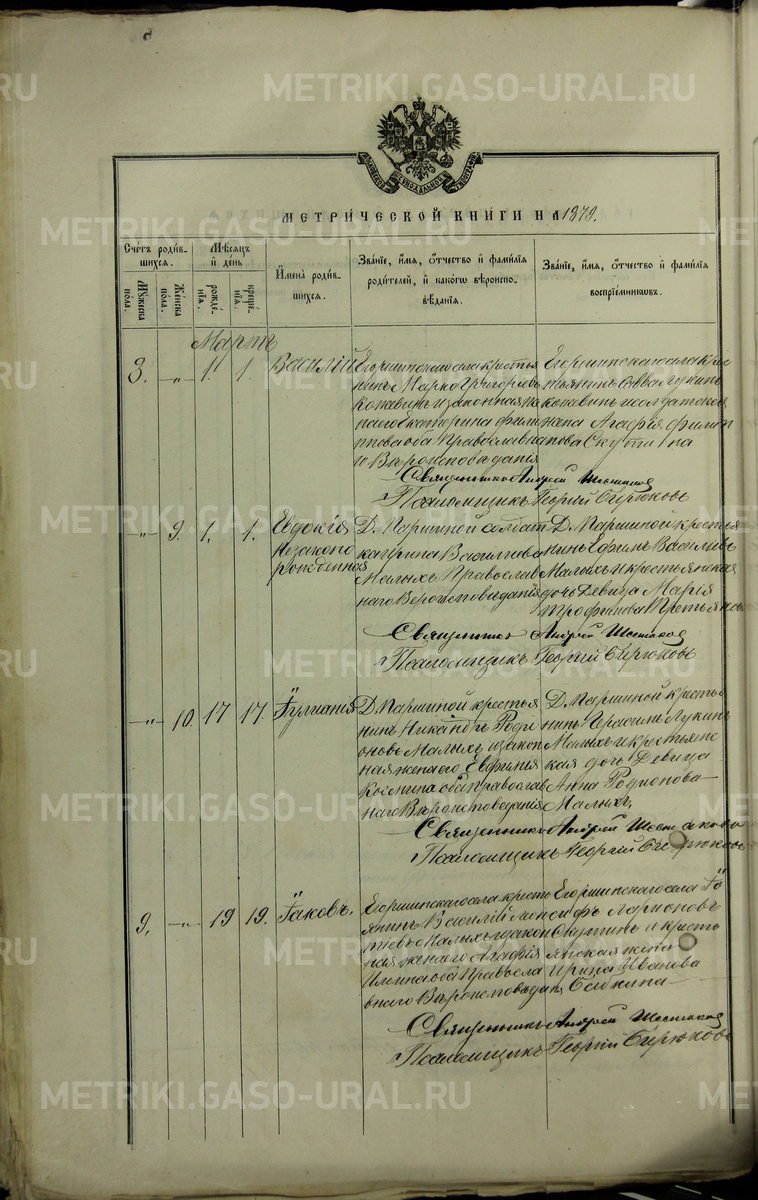 METRIKI.GASO-URAL.RU
МЕТРИЧЕСКОЙ КНИГИ НА 1879.
Счетъ родив-
шихся.
Мужеска
пола.
Женска
пола.
Мѣсяцъ
и день
рожде-
нія.
креще-
нія.
Имена родив-
шихся.
Званіе, имя, отчество и фамилія
родителей, и какогѡ вѣроиспо-
вѣданія.
Званіе, имя, отчество и фамилія
воспріемникѡвъ.
Мартъ
3. -"- 1. 1. Василій
Егоршинскаго села кресть
янинъ Марко Григорьевъ
и законная же
на его Екатерина Филип
пова оба Православна
го Вѣроисповѣданія
Егоршинскаго села крес
тьянинъ Савва Лукинъ
и солдатская
жена Агафія Филип
пова Скутина
Священникъ Андрей Шестаковъ
Псаломщикъ Георгій Бирюковъ
-"- 9. 1. 1. Евдокія
Незаконо
рожденная
Д. Паршиной солдат
Васильева
Малыхъ Православ
наго Вероисповиданія
Д. Паршиной крестья
нинъ Ефимъ Васильевъ
Малыхъ и крестьянская
дочь Девица Марія
Трофимова Третьякова
Священникъ Андрей Шестаковъ
Псаломщикъ Георгій Бирюковъ
-"- 10. 17 17. Іулианія
Д. Паршиной крестья
нинъ Никандръ Роди
оновъ Малыхъ и закон
ная жена его Евфимія
Космина оба православ
наго Вѣроисповеданія
Д. Паршиной кресть
нинъ Герасимъ Лукинъ
Малыхъ и крестьянс
кая дочь Девица
Анна Родионова
Малыхъ
Священникъ Андрей Шестаковъ
Псаломщикъ Георгій Бирюковъ
9. -"- 19 19. Іаковъ.
Егоршинскаго села кресть
янинъ Василій
Малыхъ и закон
ная жена его Агафія
оба Правосла
внаго Вѣроисповѣданія
Егоршинскаго села Іо
сифъ Ларионовъ
и кресть
янская жена
Ирина Иванова
Бабкина
Священникъ Андрей Шестаковъ
Псаломщикъ Георгій Бирюковъ